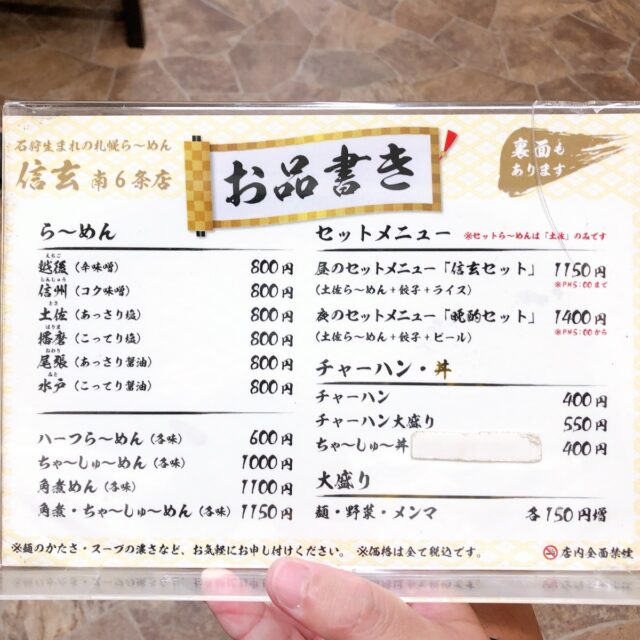 石狩生まれの札幌ら〜めん
信玄 南6条店
お品書き
裏面も
あります
ら〜めん
えちご
越後(辛味噌) 800円
しんしゅう
信州(コク味噌) 800円
とさ
土佐(あっさり塩) 800円
はりま
播磨(こってり塩) 800円
おわり
尾張(あっさり醤油) 800円
みと
水戸(こってり醤油) 800円
ハーフら〜めん(各味) 600円
ちゃ〜しゅ〜めん(各味) 1000円
角煮めん(各味) 1100円
角煮・ちゃ〜しゅ〜めん(各味) 1150円
セットメニュー ※セットら〜めんは「土佐」のみです
昼のセットメニュー「信玄セット」 1150円
(土佐ら〜めん+餃子+ライス) ※PM5:00まで
夜のセットメニュー「晩酌セット」 1400円
(土佐ら〜めん+餃子+ビール) ※PM5:00から
チャーハン・丼
チャーハン 400円
チャーハン大盛り 550円
ちゃ〜しゅ〜丼 400円
大盛り
麺・野菜・メンマ 各150円増
※麺のかたさ・スープの濃さなど、お気軽にお申し付けください。 ※価格は全て税込です。 店内全面禁煙